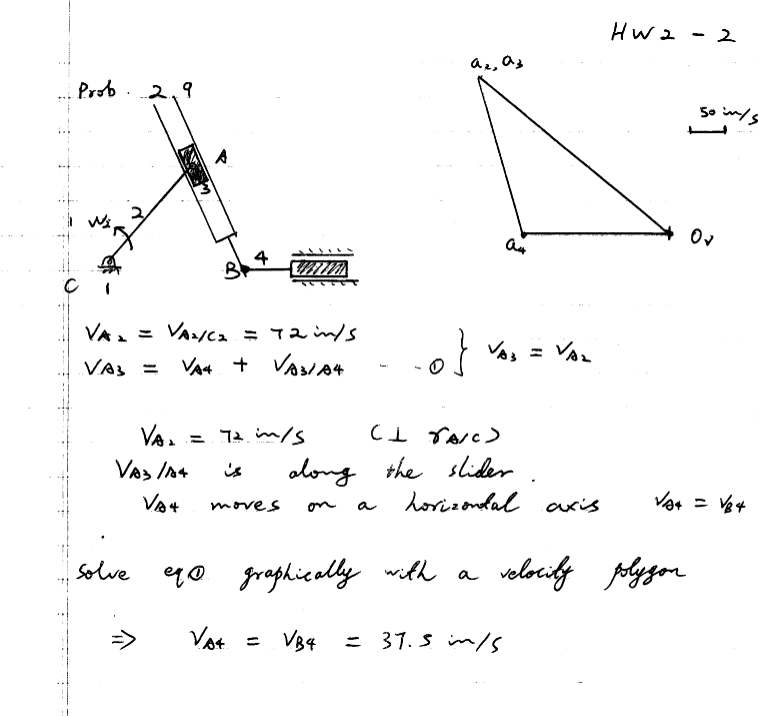 HW2 - 2
Prob. 2.9
a2, a3
50 in/s
A
3
2
W2
B
4
C
1
a4
Ov
VA2 = VA2/C2 = 72 in/s
VA3 = VA4 + VA3/A4 - - ① } VA3 = VA2
VA2 = 72 in/s (⊥ rA/C)
VA3/A4 is along the slider.
VA4 moves on a horizondal axis VA4 = VB4
Solve eq① graphically with a velocity polygon
⇒ VA4 = VB4 = 37.5 in/s